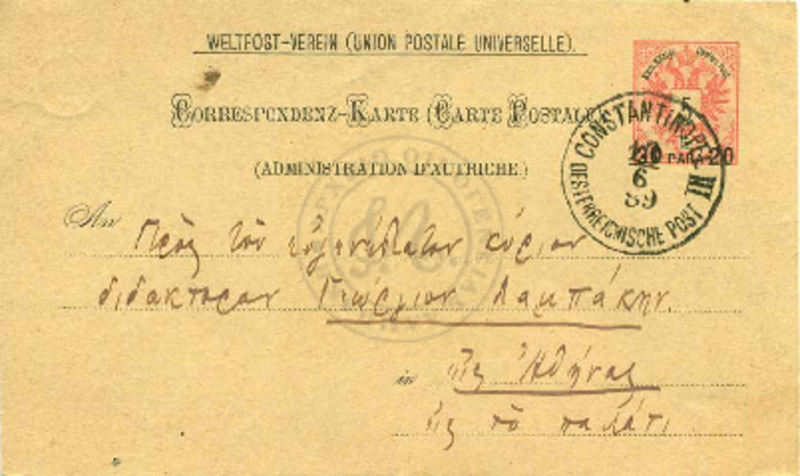 WELTPOST-VEREIN (UNION POSTALE UNIVERSELLE).
CORRESPONDENZ-KARTE (CARTE POSTALE)
(ADMINISTRATION D'AUTRICHE.)
5
20 PARA 20
CONSTANTINOPEL III
6
89
OESTERREICHISCHE POST
An Πρὸς τὸν εὐγενέστατον κύριον
διδάκτοραν Γεώργιον Λαμπάκην.
in Εἰς Ἀθήνας
Εἰς τὸ παλάτι